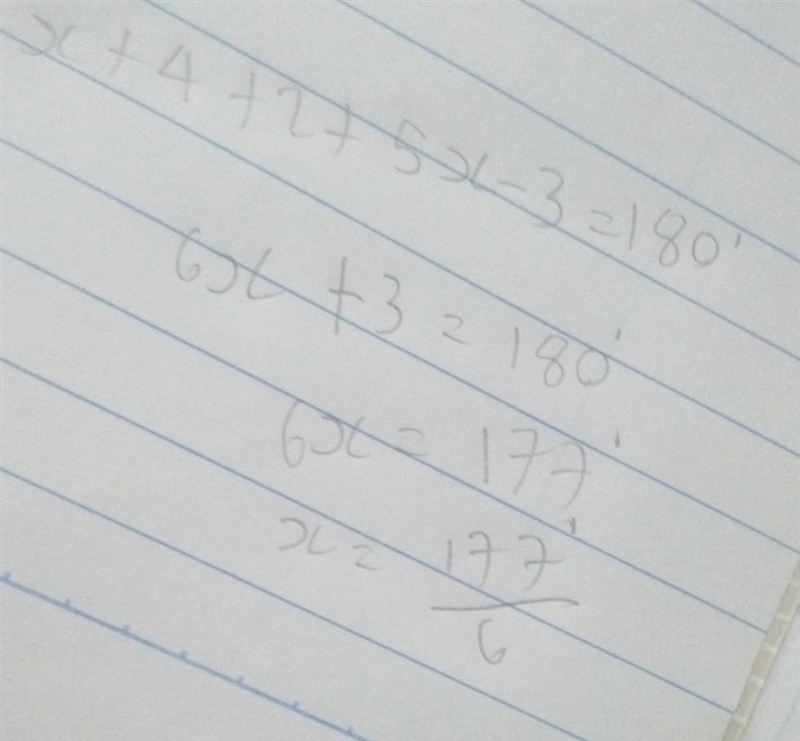 x + 4 + 2 + 5x - 3 = 180'
6x + 3 = 180'
6x = 177'
x = 177'
6